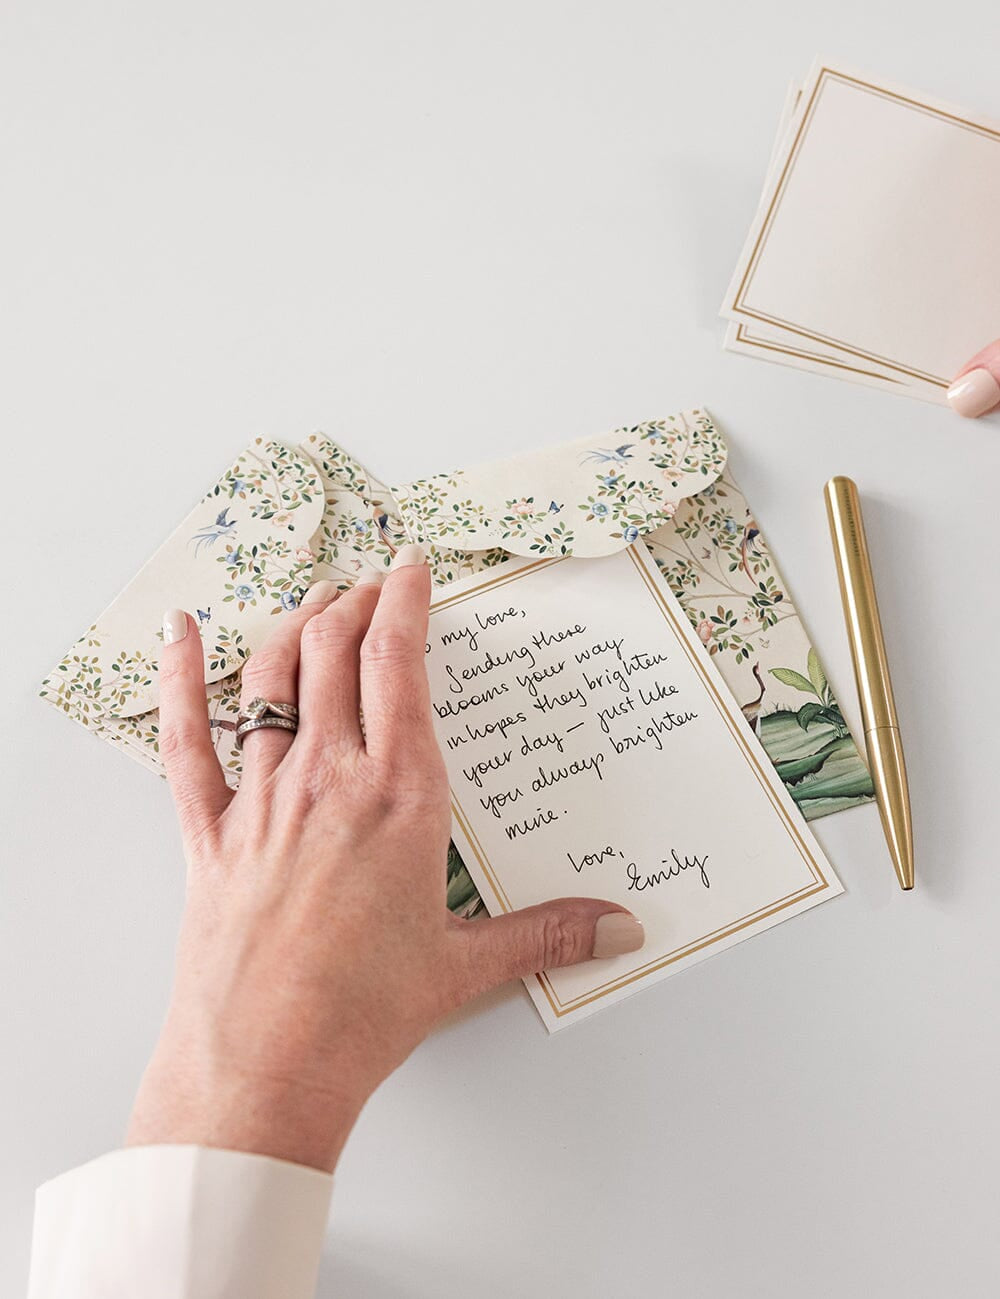 my love,
Sending these
blooms your way
in hopes they brighten
your day — just like
you always brighten
mine.
Love,
Emily